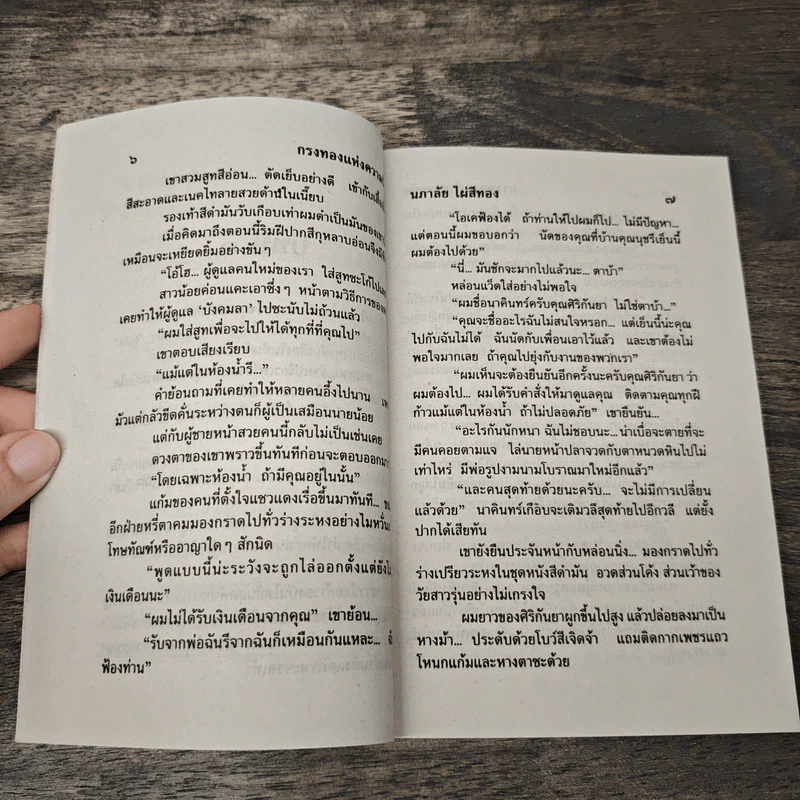 ๖
กรงทองแห่งความ
เขาสวมสูทสีอ่อน... ตัดเย็บอย่างดี เข้ากับเสื้อ
สีสะอาดและเนคไทลายสวยด้านในเนี้ยบ
รองเท้าสีดำมันวับเกือบเท่าผมดำเป็นมันของเขา
เมื่อคิดมาถึงตอนนี้ริมฝีปากสีกุหลาบอ่อนจึงมี
เหมือนจะเหยียดยิ้มอย่างขัน ๆ
“โอ้โฮ... ผู้ดูแลคนใหม่ของเรา ใส่สูทซะโก้ไป
สาวน้อยค่อนแคะเอาซึ่ง ๆ หน้าตามวิธีการของ
เคยทำให้ผู้ดูแล ‘บังคมลา’ ไปซะนับไม่ถ้วนแล้ว
“ผมใส่สูทเพื่อจะไปให้ได้ทุกที่ที่คุณไป”
เขาตอบเสียงเรียบ
“แม้แต่ในห้องน้ำรึ...”
คำย้อนถามที่เคยทำให้หลายคนอึ้งไปนาน
มัวแต่กลัวขีดคั่นระหว่างตนก็ผู้เป็นเสมือนนายน้อย
แต่กับผู้ชายหน้าสวยคนนี้กลับไม่เป็นเช่นเคย
ดวงตาของเขาพราวขึ้นทันทีก่อนจะตอบออกมา
“โดยเฉพาะห้องน้ำ ถ้ามีคุณอยู่ในนั้น”
แก้มของคนที่ตั้งใจแซวแดงเรื่อขึ้นมาทันที...
อีกฝ่ายหรี่ตาคมมองกราดไปทั่วร่างระหงอย่างไม่หวั่น
โทษทัณฑ์หรืออาญาใด ๆ สักนิด
“พูดแบบนี้น่ะระวังจะถูกไล่ออกตั้งแต่ยังไ
เงินเดือนนะ”
“ผมไม่ได้รับเงินเดือนจากคุณ” เขาย้อน...
“รับจากพ่อฉันรึจากฉันก็เหมือนกันแหละ...
ฟ้องท่าน”
นภาลัย ไผ่สีทอง
๗
“โอเคฟ้องได้ ถ้าท่านให้ไปผมก็ไป... ไม่มีปัญหา...
แต่ตอนนี้ผมขอบอกว่า นัดของคุณที่บ้านคุณนุชวีเย็นนี้
ผมต้องไปด้วย”
“นี่... มันชักจะมากไปแล้วนะ... ตาบ้า”
หล่อนแว็ดใส่อย่างไม่พอใจ
“ผมชื่อนาคินทร์ครับคุณศิริกันยา ไม่ใช่ตาบ้า...”
“คุณจะชื่ออะไรฉันไม่สนใจหรอก... แต่เย็นนี้น่ะคุณ
ไปกับฉันไม่ได้ ฉันนัดกับเพื่อนเอาไว้แล้ว และเขาต้องไม่
พอใจมากเลย ถ้าคุณไปยุ่งกับงานของพวกเรา”
“ผมเห็นจะต้องยืนยันอีกครั้งนะครับคุณศิริกันยา ว่า
ผมต้องไป... ผมได้รับคำสั่งให้มาดูแลคุณ ติดตามคุณทุกฝี
ก้าวแม้แต่ในห้องน้ำ ถ้าไม่ปลอดภัย” เขายืนยัน...
“อะไรกันนักหนา ฉันไม่ชอบนะ... น่าเบื่อจะตายที่จะ
มีคนคอยตามแจ ไล่นายหน้าปลาจวดกับตาหนวดหินไปไม่
เท่าไหร่ มีพ่อรูปงามนามโบราณมาใหม่อีกแล้ว”
“และคนสุดท้ายด้วยนะครับ... จะไม่มีการเปลี่ยน
แล้วด้วย” นาคินทร์เกือบจะเติมวลีสุดท้ายไปอีกวลี แต่ยั้ง
ปากได้เสียทัน
เขายังยืนประจันหน้ากับหล่อนนิ่ง... มองกราดไปทั่ว
ร่างเปรียวระหงในชุดหนังสีดำมัน อวดส่วนโค้ง ส่วนเว้าของ
วัยสาวรุ่นอย่างไม่เกรงใจ
ผมยาวของศิริกันยาผูกขึ้นไปสูง แล้วปล่อยลงมาเป็น
หางม้า... ประดับด้วยโบว์สีเจิดจ้า แถมติดกากเพชรแถว
โหนกแก้มและหางตาซะด้วย